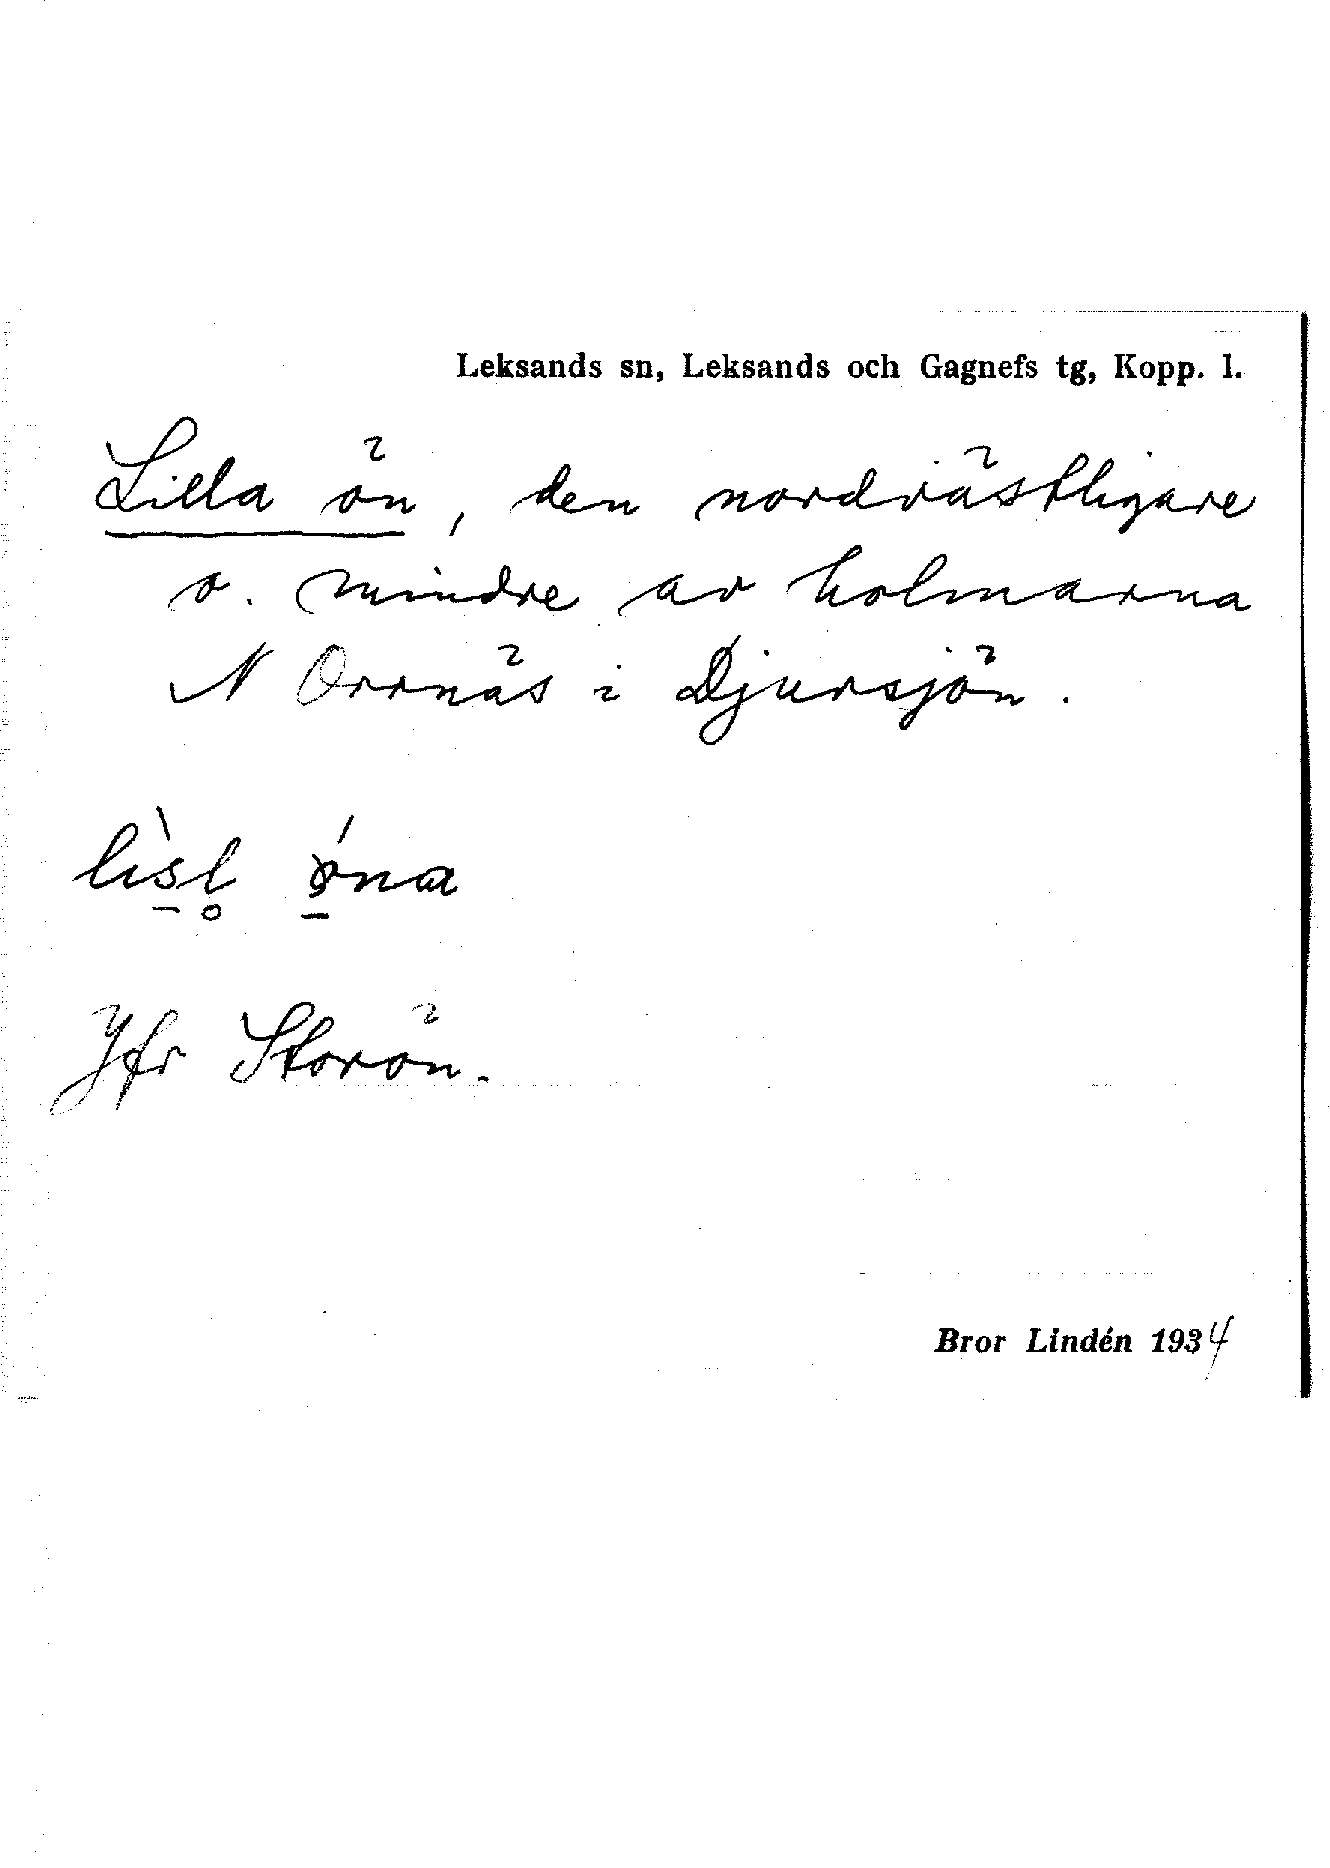 Leksands sn, Leksands och Gagnefs tg, Kopp. l.
Lilla ön, den nordvästligare
o. mindre av holmarna
N Orrnäs i Djursjön.
lìsl̥ ǿna
Jfr Storön.
Bror Lindén 1934